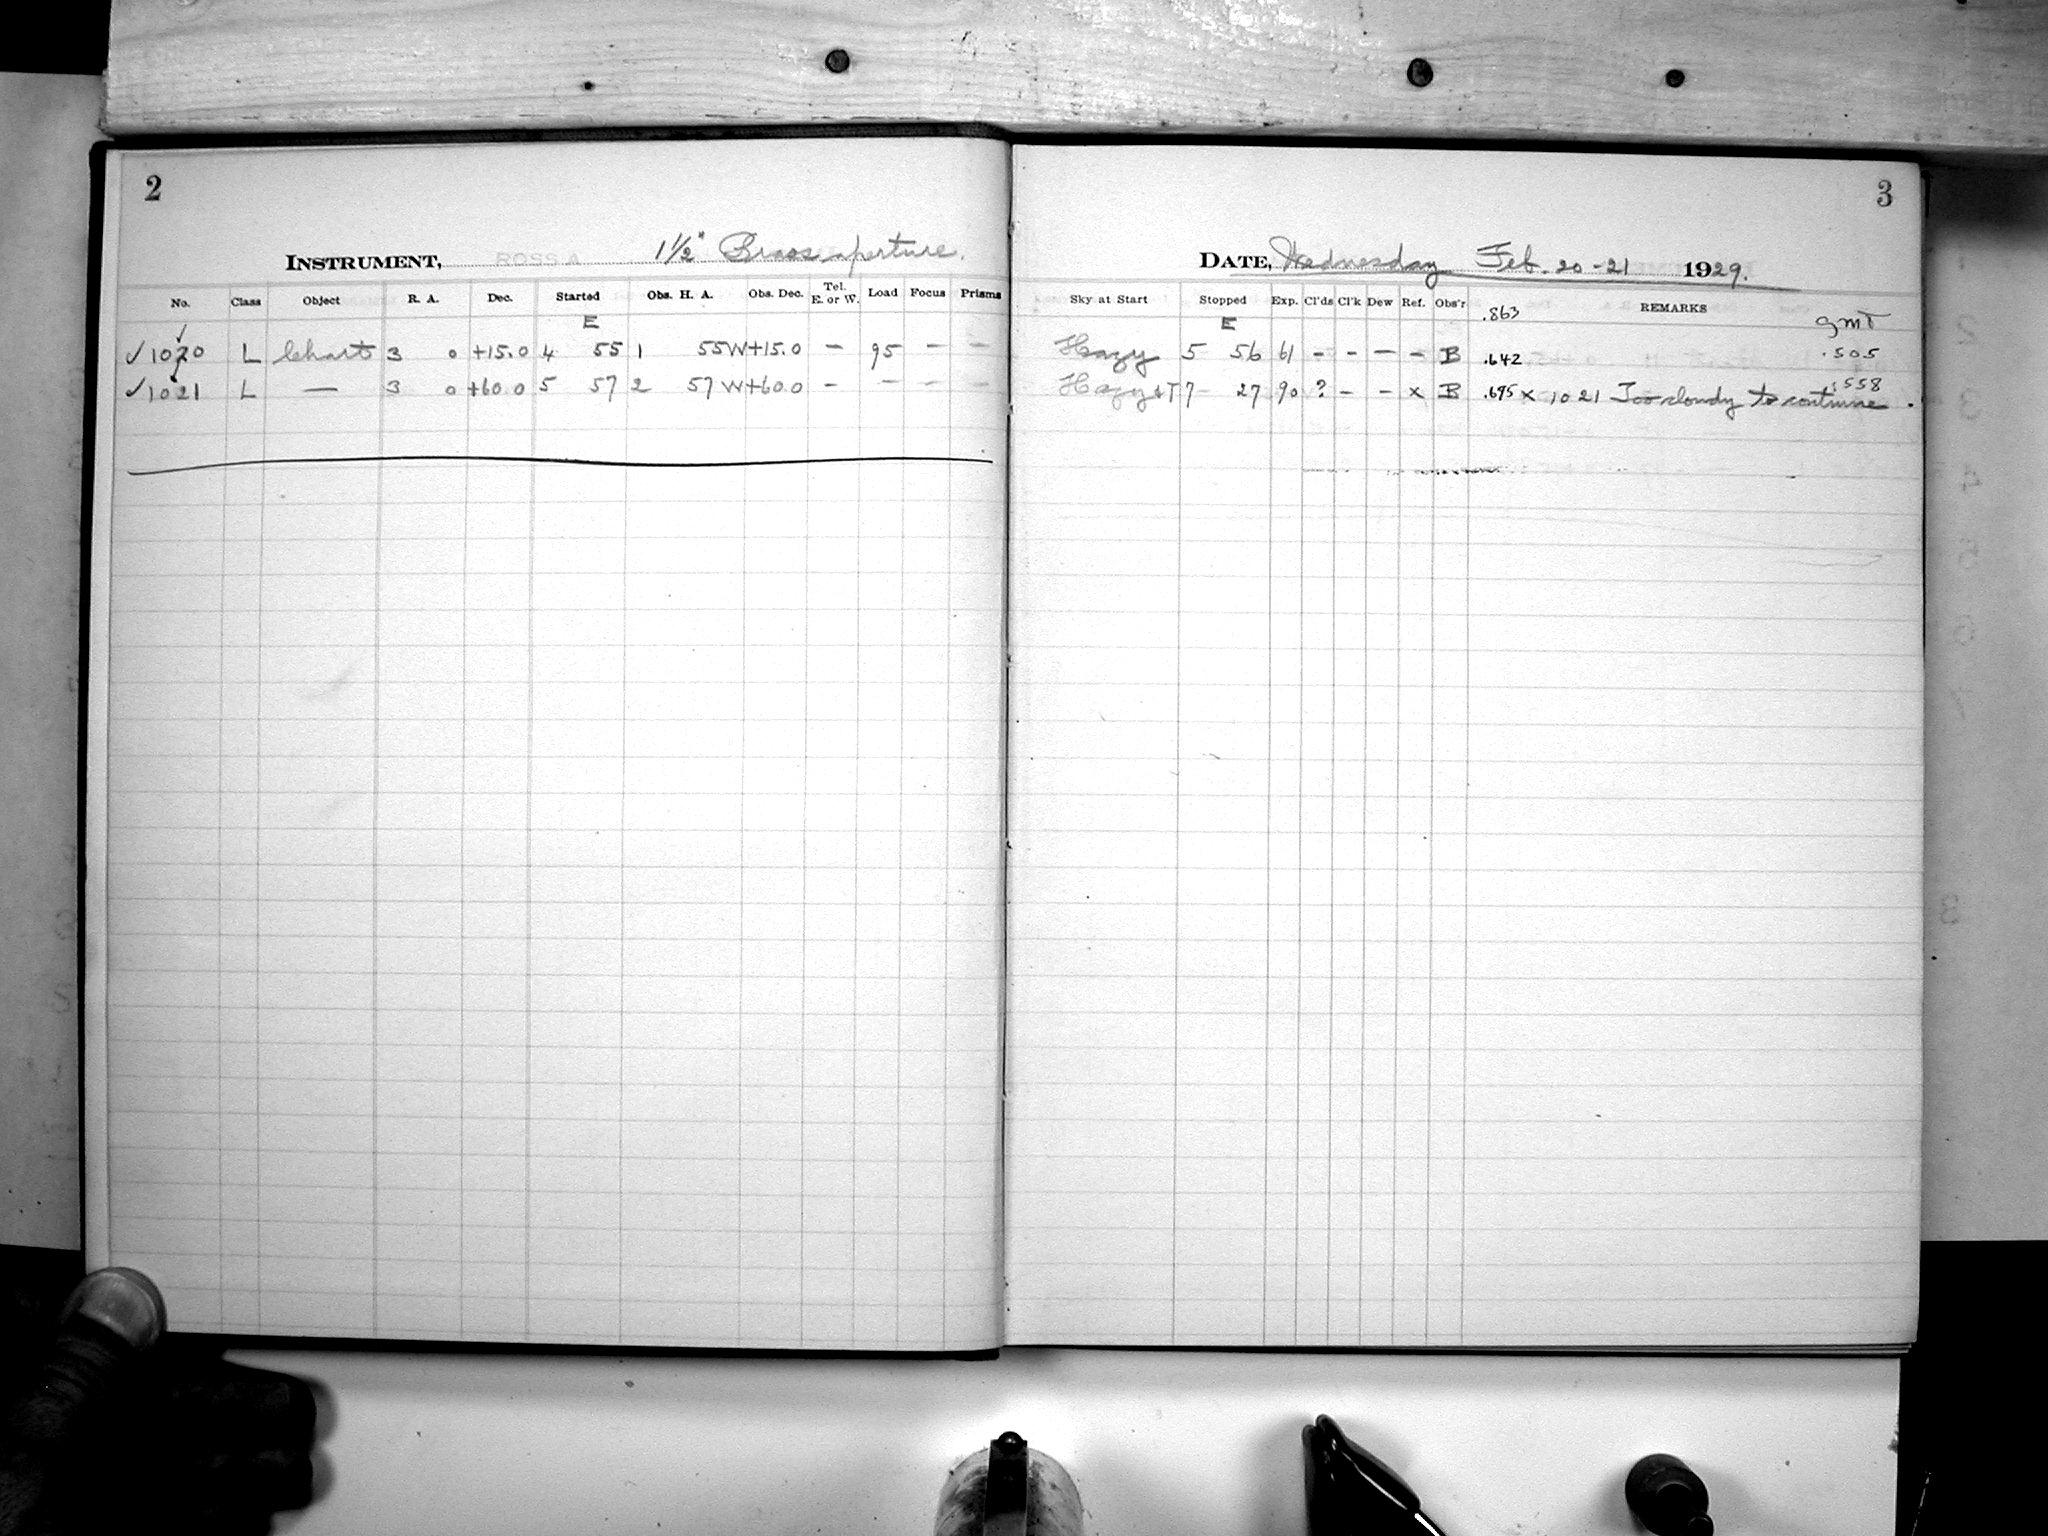 2
INSTRUMENT, ROSS A 1½" Brass aperture.
No. Class Object R. A. Dec. Started Obs. H. A. Obs. Dec. Tel. E. or W. Load Focus Prisms
E
✓ 1020 L Chart 3 0 +15.0 4 55 1 55 W +15.0 — 95 — —
✓ 1021 L — 3 0 +60.0 5 57 2 57 W +60.0 — — — —
3
DATE, Wednesday Feb. 20-21 1929.
Sky at Start Stopped Exp. Cl'ds Cl'k Dew Ref. Obs'r .863 REMARKS
E GMT
Hazy 5 56 61 - - - - B .642 .505
Hazy 7 27 90 ? - - x B .695 x 1021 Too cloudy to continue. .558